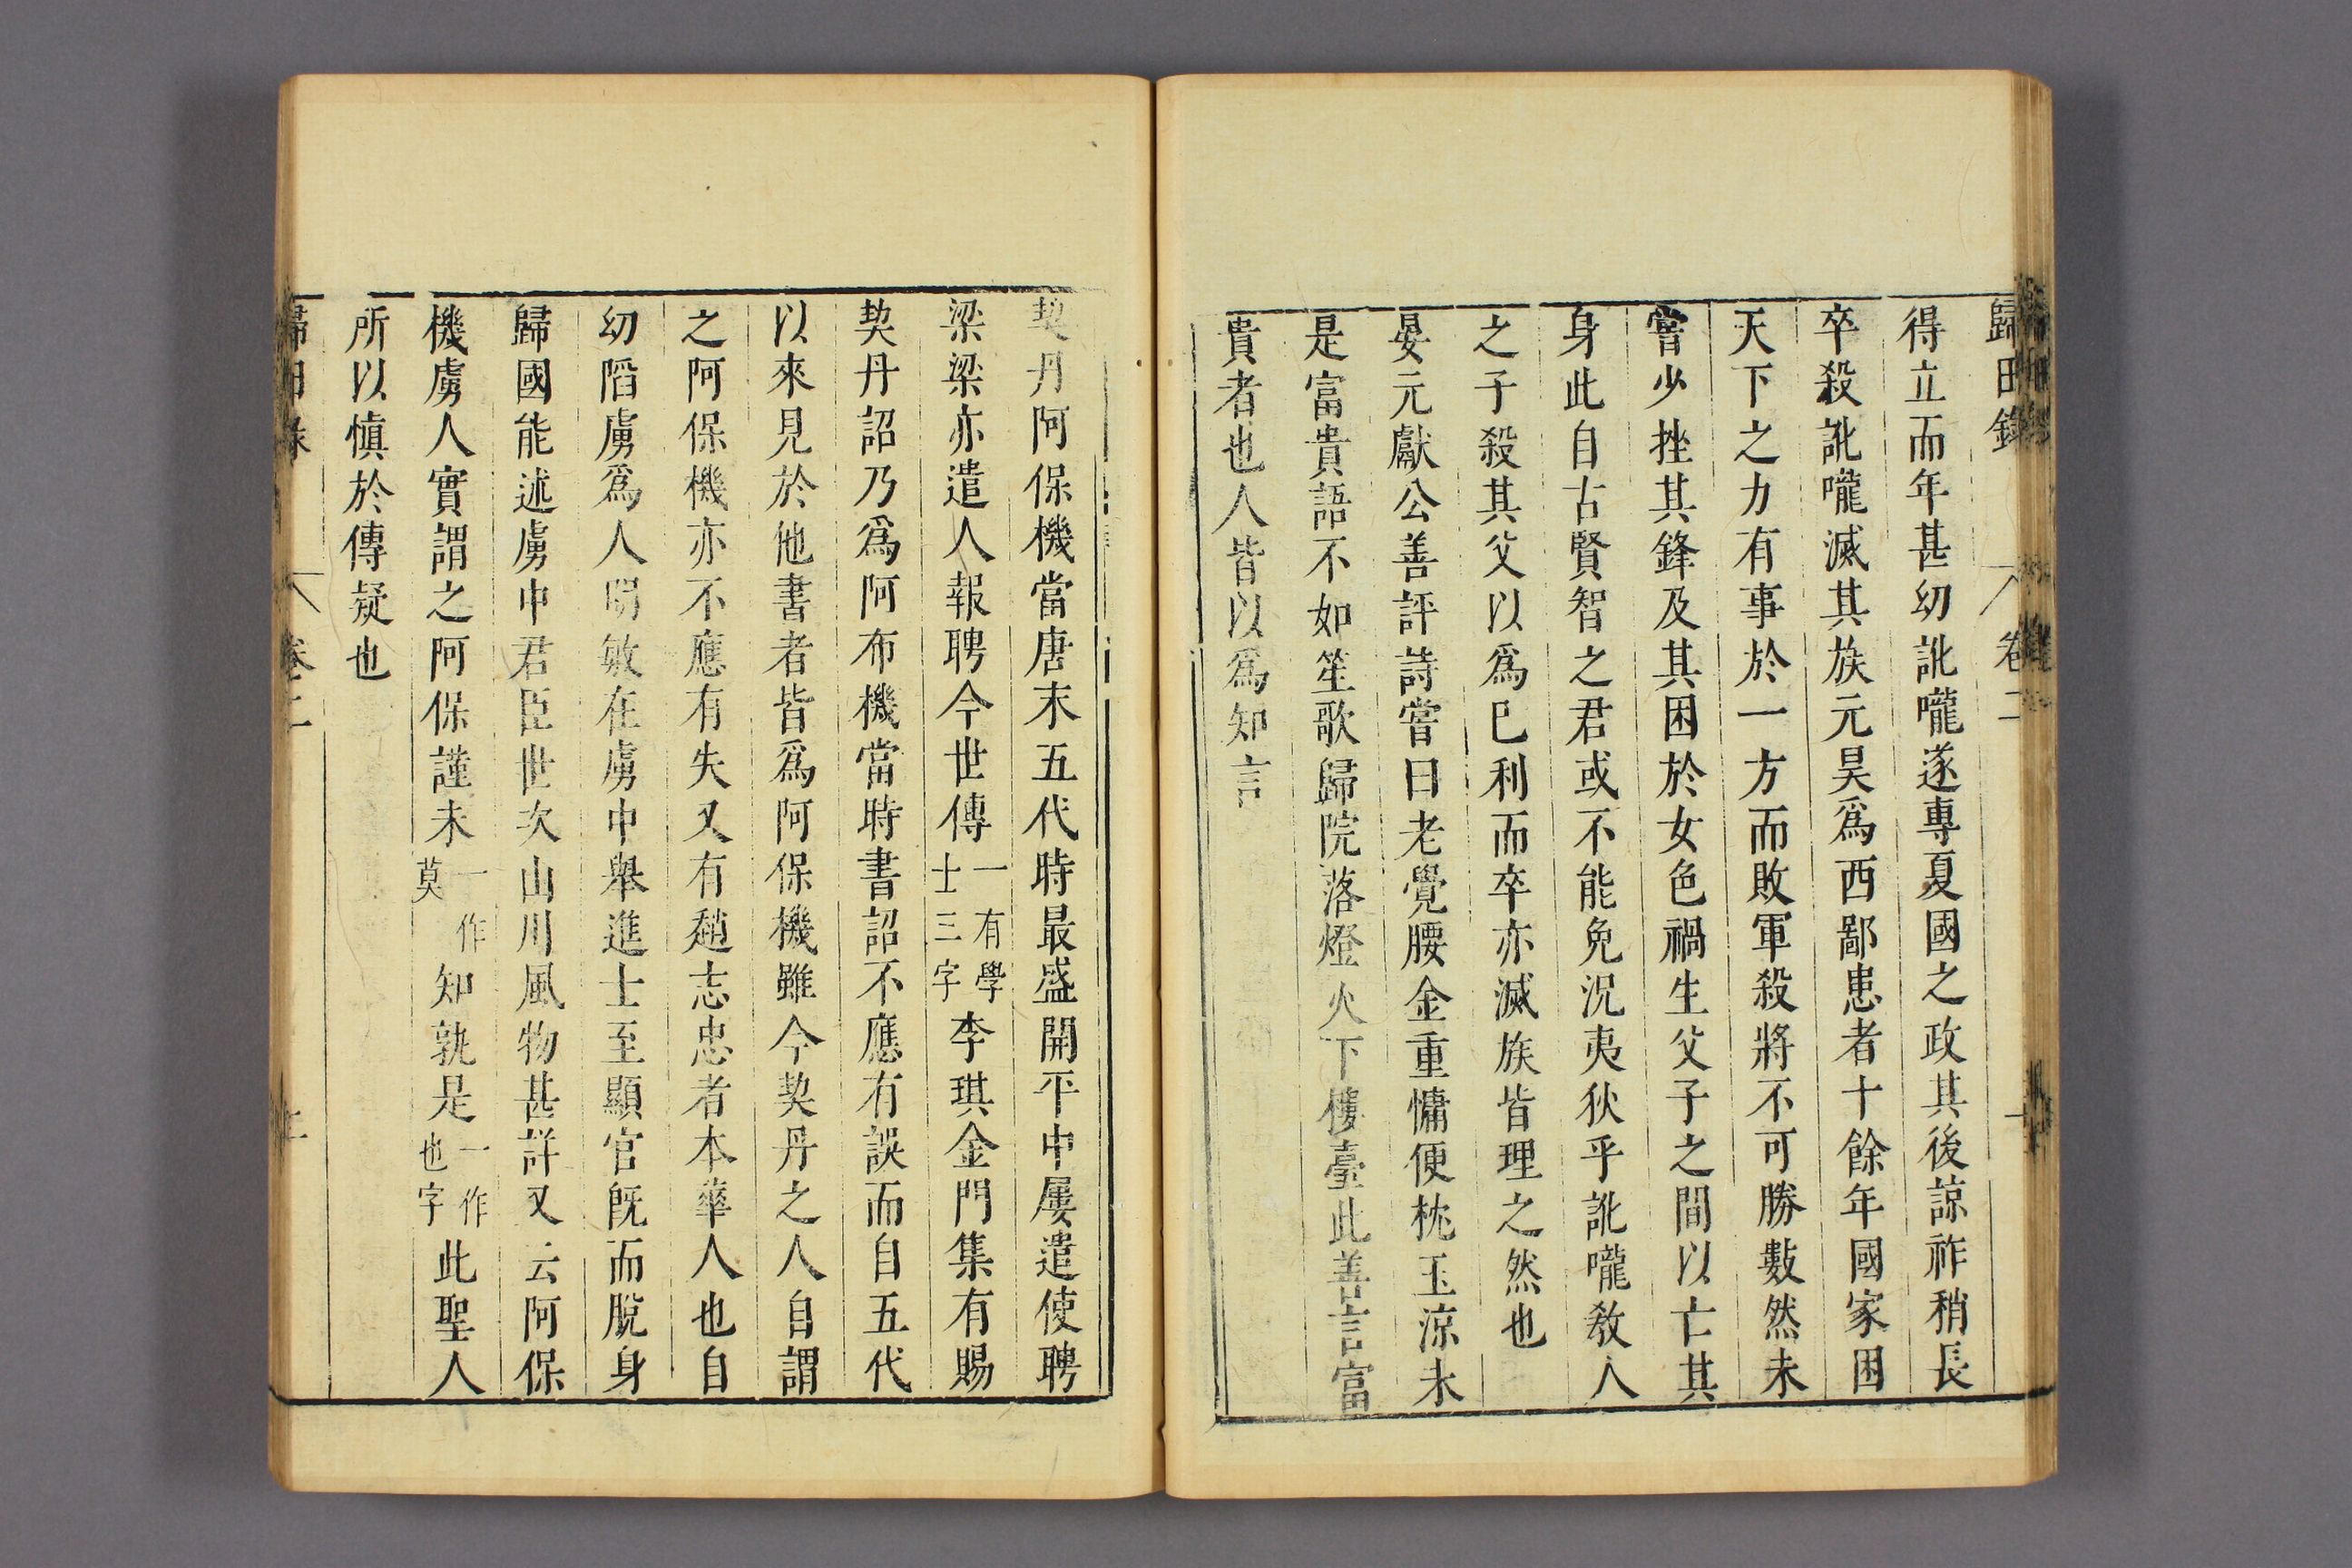 歸田錄 卷二
得立而年甚幼訛嚨遂專夏國之政其後諒祚稍長
卒殺訛嚨滅其族元昊爲西鄙患者十餘年國家困
天下之力有事於一方而敗軍殺將不可勝數然未
嘗少挫其鋒及其困於女色禍生父子之間以亡其
身此自古賢智之君或不能免況夷狄乎訛嚨敎人
之子殺其父以爲已利而卒亦滅族皆理之然也
晏元獻公善評詩嘗曰老覺腰金重慵便枕玉涼未
是富貴語不如笙歌歸院落燈火下樓臺此善言富
貴者也人皆以爲知言
契丹阿保機當唐末五代時最盛開平中屢遣使聘
梁梁亦遣人報聘今世傳一有學士三字李琪金門集有賜
契丹詔乃爲阿布機當時書詔不應有誤而自五代
以來見於他書者皆爲阿保機雖今契丹之人自謂
之阿保機亦不應有失又有趙志忠者本華人也自
幼陷虜爲人明敏在虜中舉進士至顯官旣而脫身
歸國能述虜中君臣世次山川風物甚詳又云阿保
機虜人實謂之阿保謹未一作莫知孰是一作也字此聖人
所以愼於傳疑也
歸田錄 卷二